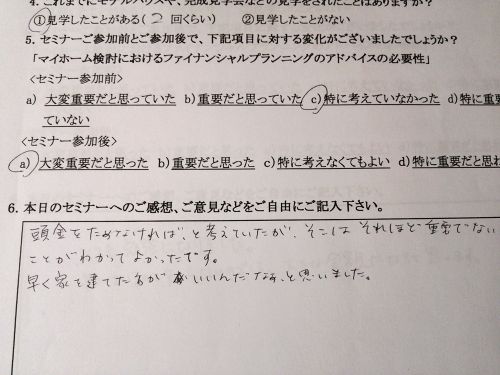 4. これまでにモデルハウスや、完成見学会などの見学をされたことはありますか？
①見学したことがある( 2 回くらい) ②見学したことがない
5. セミナーご参加前とご参加後で、下記項目に対する変化がございましたでしょうか？
「マイホーム検討におけるファイナンシャルプランニングのアドバイスの必要性」
<セミナー参加前>
a) 大変重要だと思っていた b)重要だと思っていた c)特に考えていなかった d)特に重要
ていない
<セミナー参加後>
a)大変重要だと思った b)重要だと思った c)特に考えなくてもよい d)特に重要だと思わ
6. 本日のセミナーへのご感想、ご意見などをご自由にご記入下さい。
頭金をためなければ、と考えていたが、そこはそれほど重要でない
ことがわかってよかったです。
早く家を建てた方がいいんだなあ、と思いました。